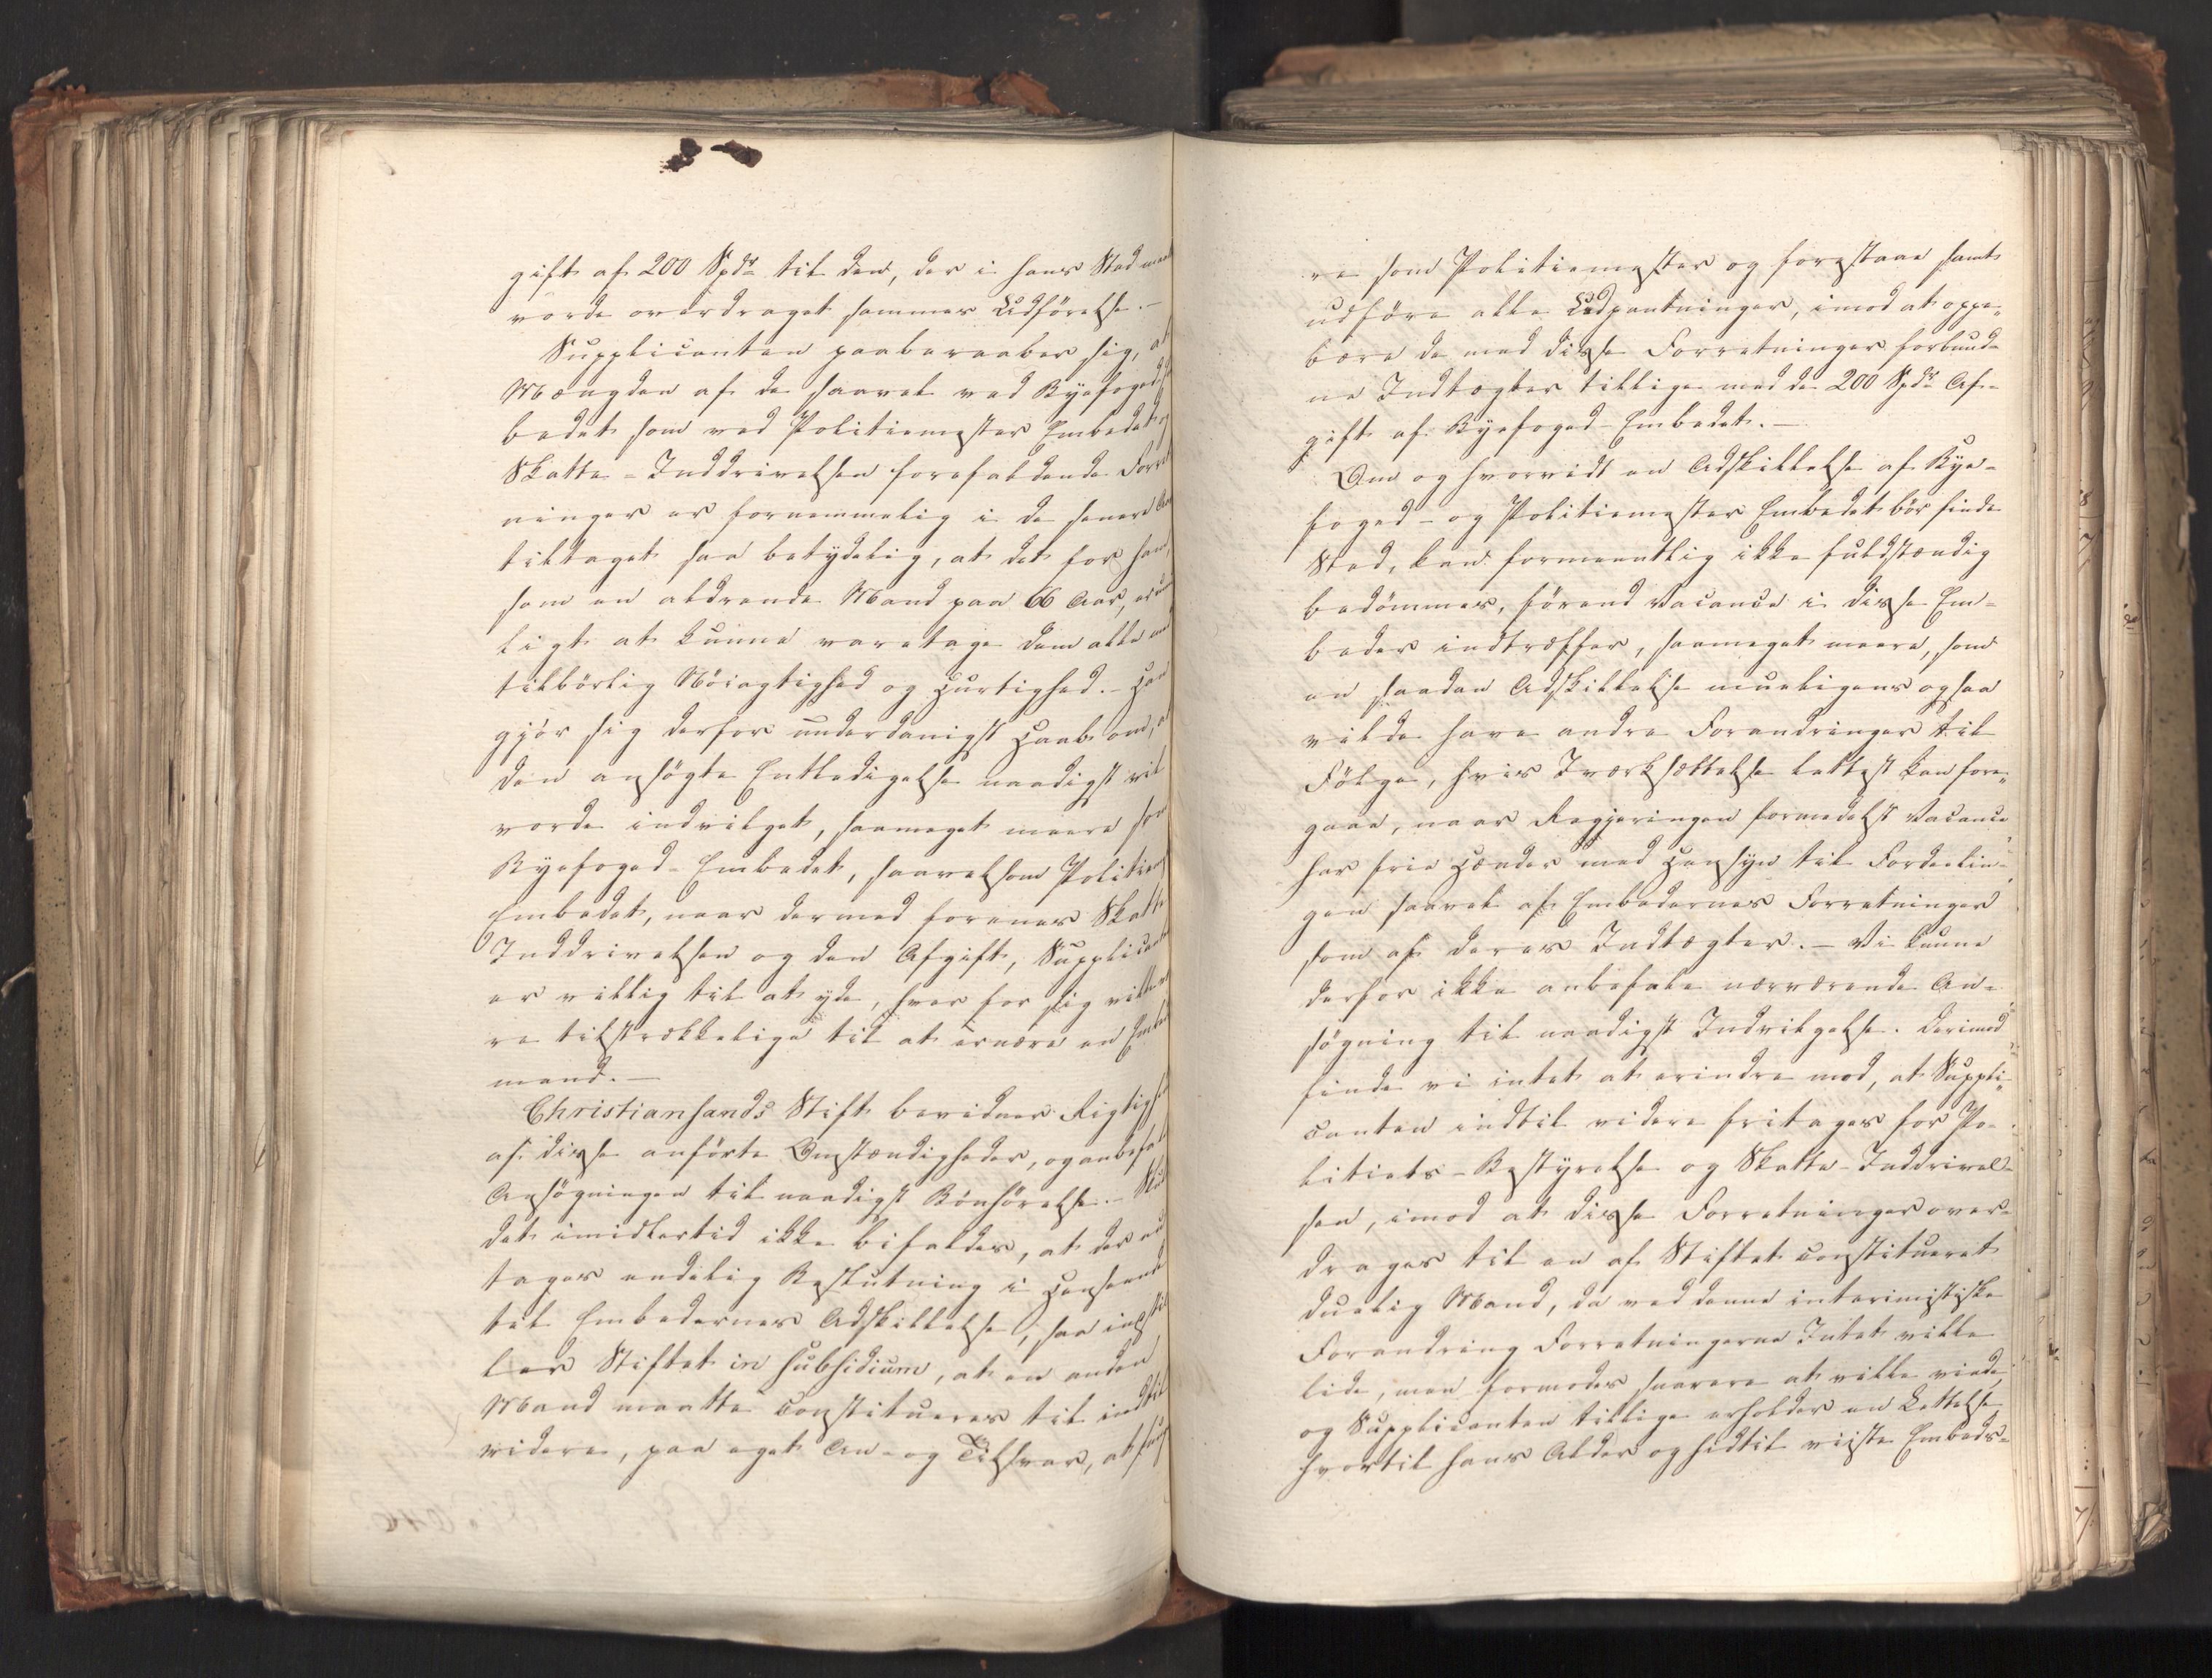 gift af 200 Spdr til den, der i hans Sted maatte
vorde overdraget sammes Udførelse. —
Supplicanten paaberaaber sig, at
Mængden af de saavel ved Byefoged
bedet som ved Politiemester Embedet og
Skatte-Inddrivelsen forefaldende Forret
ninger er fornemmelig i de senere Aar
tiltaget saa betydelig, at det for ham,
som en aldrende Mand paa 66 Aar, er umu
ligt at kunne varetage dem alle med
tilbørlig Nöiagtighed og Hurtighed. — Han
gjør sig derfor underdanigst Haab om, at
den ansøgte Entledigelse naadigst vil
vorde indvilget, saameget meere som
Byefoged-Embedet, saavelsom Politiem
Embedet, naar dermed forenes Skatte
Inddrivelsen og den Afgift, Supplicanten
er villig til at yde, hver for sig ville væ
re tilstrækkelige til at ernære en Embeds
mand. —
Christiansands Stift bevidner Rigtighe
af disse anførte Omstændigheder, og anbefal
Ansøgningen til naadigst Bønhørelse. — Skul
det imidlertid ikke bifaldes, at der nu
tages endelig Beslutning i Henseende
til Embedernes Adskillelse, saa indstil
ler Stiftet in subsidium, at en anden
Mand maatte constitueres til indtil
videre, paa eget An- og Tilsvar, at fung
re som Politiemester og forestaae samt
udføre alle Udpantninger, imod at oppe„
bære de med disse Forretninger forbund-
ne Indtægter tillige med de 200 Spdr Af-
gift af Byefoged-Embedet. —
Om og hvorvidt en Adskillelse af Bye-
foged- og Politiemester Embedet bör finde
Sted, kan formeentlig ikke fuldstændig
bedömmes, förend Vacance i disse Em-
beder indtræffer, saameget meere, som
en saadan Adskillelse mueligens ogsaa
vilde have andre Forandringer til
Følge, hvis Iværksættelse lettest kan fore„
gaae, naar Regjeringen formedelst Vacance
har frie Hænder med Hensyn til Fordeelin-
gen saavel af Embedernes Forretninger
som af deres Indtægter. — Vi kunne
derfor ikke anbefale nærværende An-
søgning til naadigst Indvilgelse. Derimod
finde vi intet at erindre mod, at Suppli-
canten indtil videre fritages for Po-
litiets-Bestyrelse og Skatte-Inddrivel-
sen, imod at disse Forretninger over-
drages til en af Stiftet constitueret
duelig Mand, da ved denne interimistiske
Forandring Forretningerne Intet ville
lide, men formodes snarere at ville vinde,
og Supplicanten tillige erholder en Lettelse,
hvortil hans Alder og hidtil viiste Embeds-